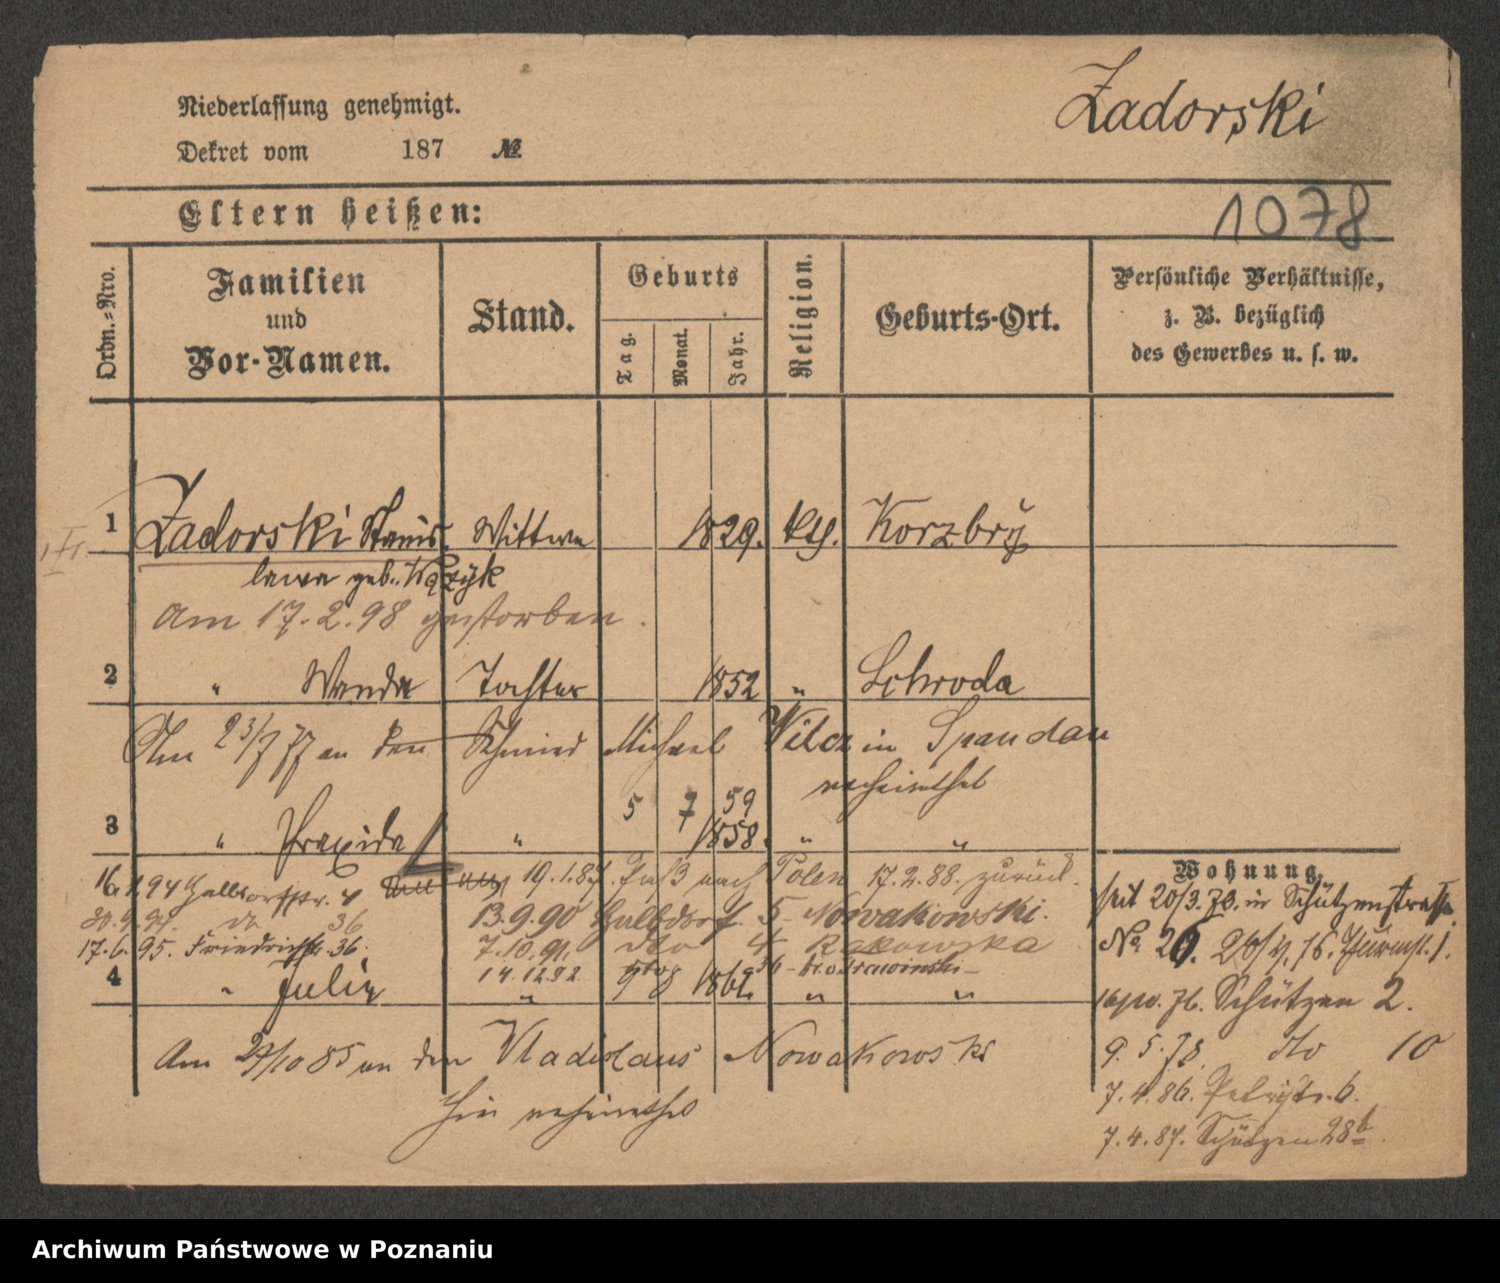 Niederlassung genehmigt.
Zadorski
Dekret vom 187 №.
Eltern heißen:
1078
Ordn.-Nro.
Familien und Vor-Namen.
Stand.
Geburts
Tag.
Monat.
Jahr.
Religion.
Geburts-Ort.
Persönliche Verhältnisse,
z. B. bezüglich
des Gewerbes u. s. w.
1 Zadorski Stanis- Wittwe 1829. kth. Korzbry
lawa geb.
Am 17.2.98 gestorben.
2 " Wanda Tochter 1852 " Schroda
Am 23/7 77 an den Schmied Michael Wilcz in Spandau
verheirathet
5 7 59
3 " Praxida " 1858. " "
19.1.87. Paß nach Polen 17.2.88. zurück.
16. 94 Halbdorfstr.
13.9.90 Halbdorf. 5 Nowakowski.
do 36
7.10.91. dto 4 Rakowska
17.6.95. Friedrichstr. 36.
14.12.92
4 " Julie " 9 8 1862 " "
Am 27/10 85 an den Vladislaus Nowakowski
hier verheirathet
Wohnung.
seit 20/3. 73. in Schützenstrasse
No. 26.
76. Schützen 2.
9.5.78. dto 10
7.4.86. Petristr. 6.
7.4.87. Schützen 28b.
Archiwum Państwowe w Poznaniu